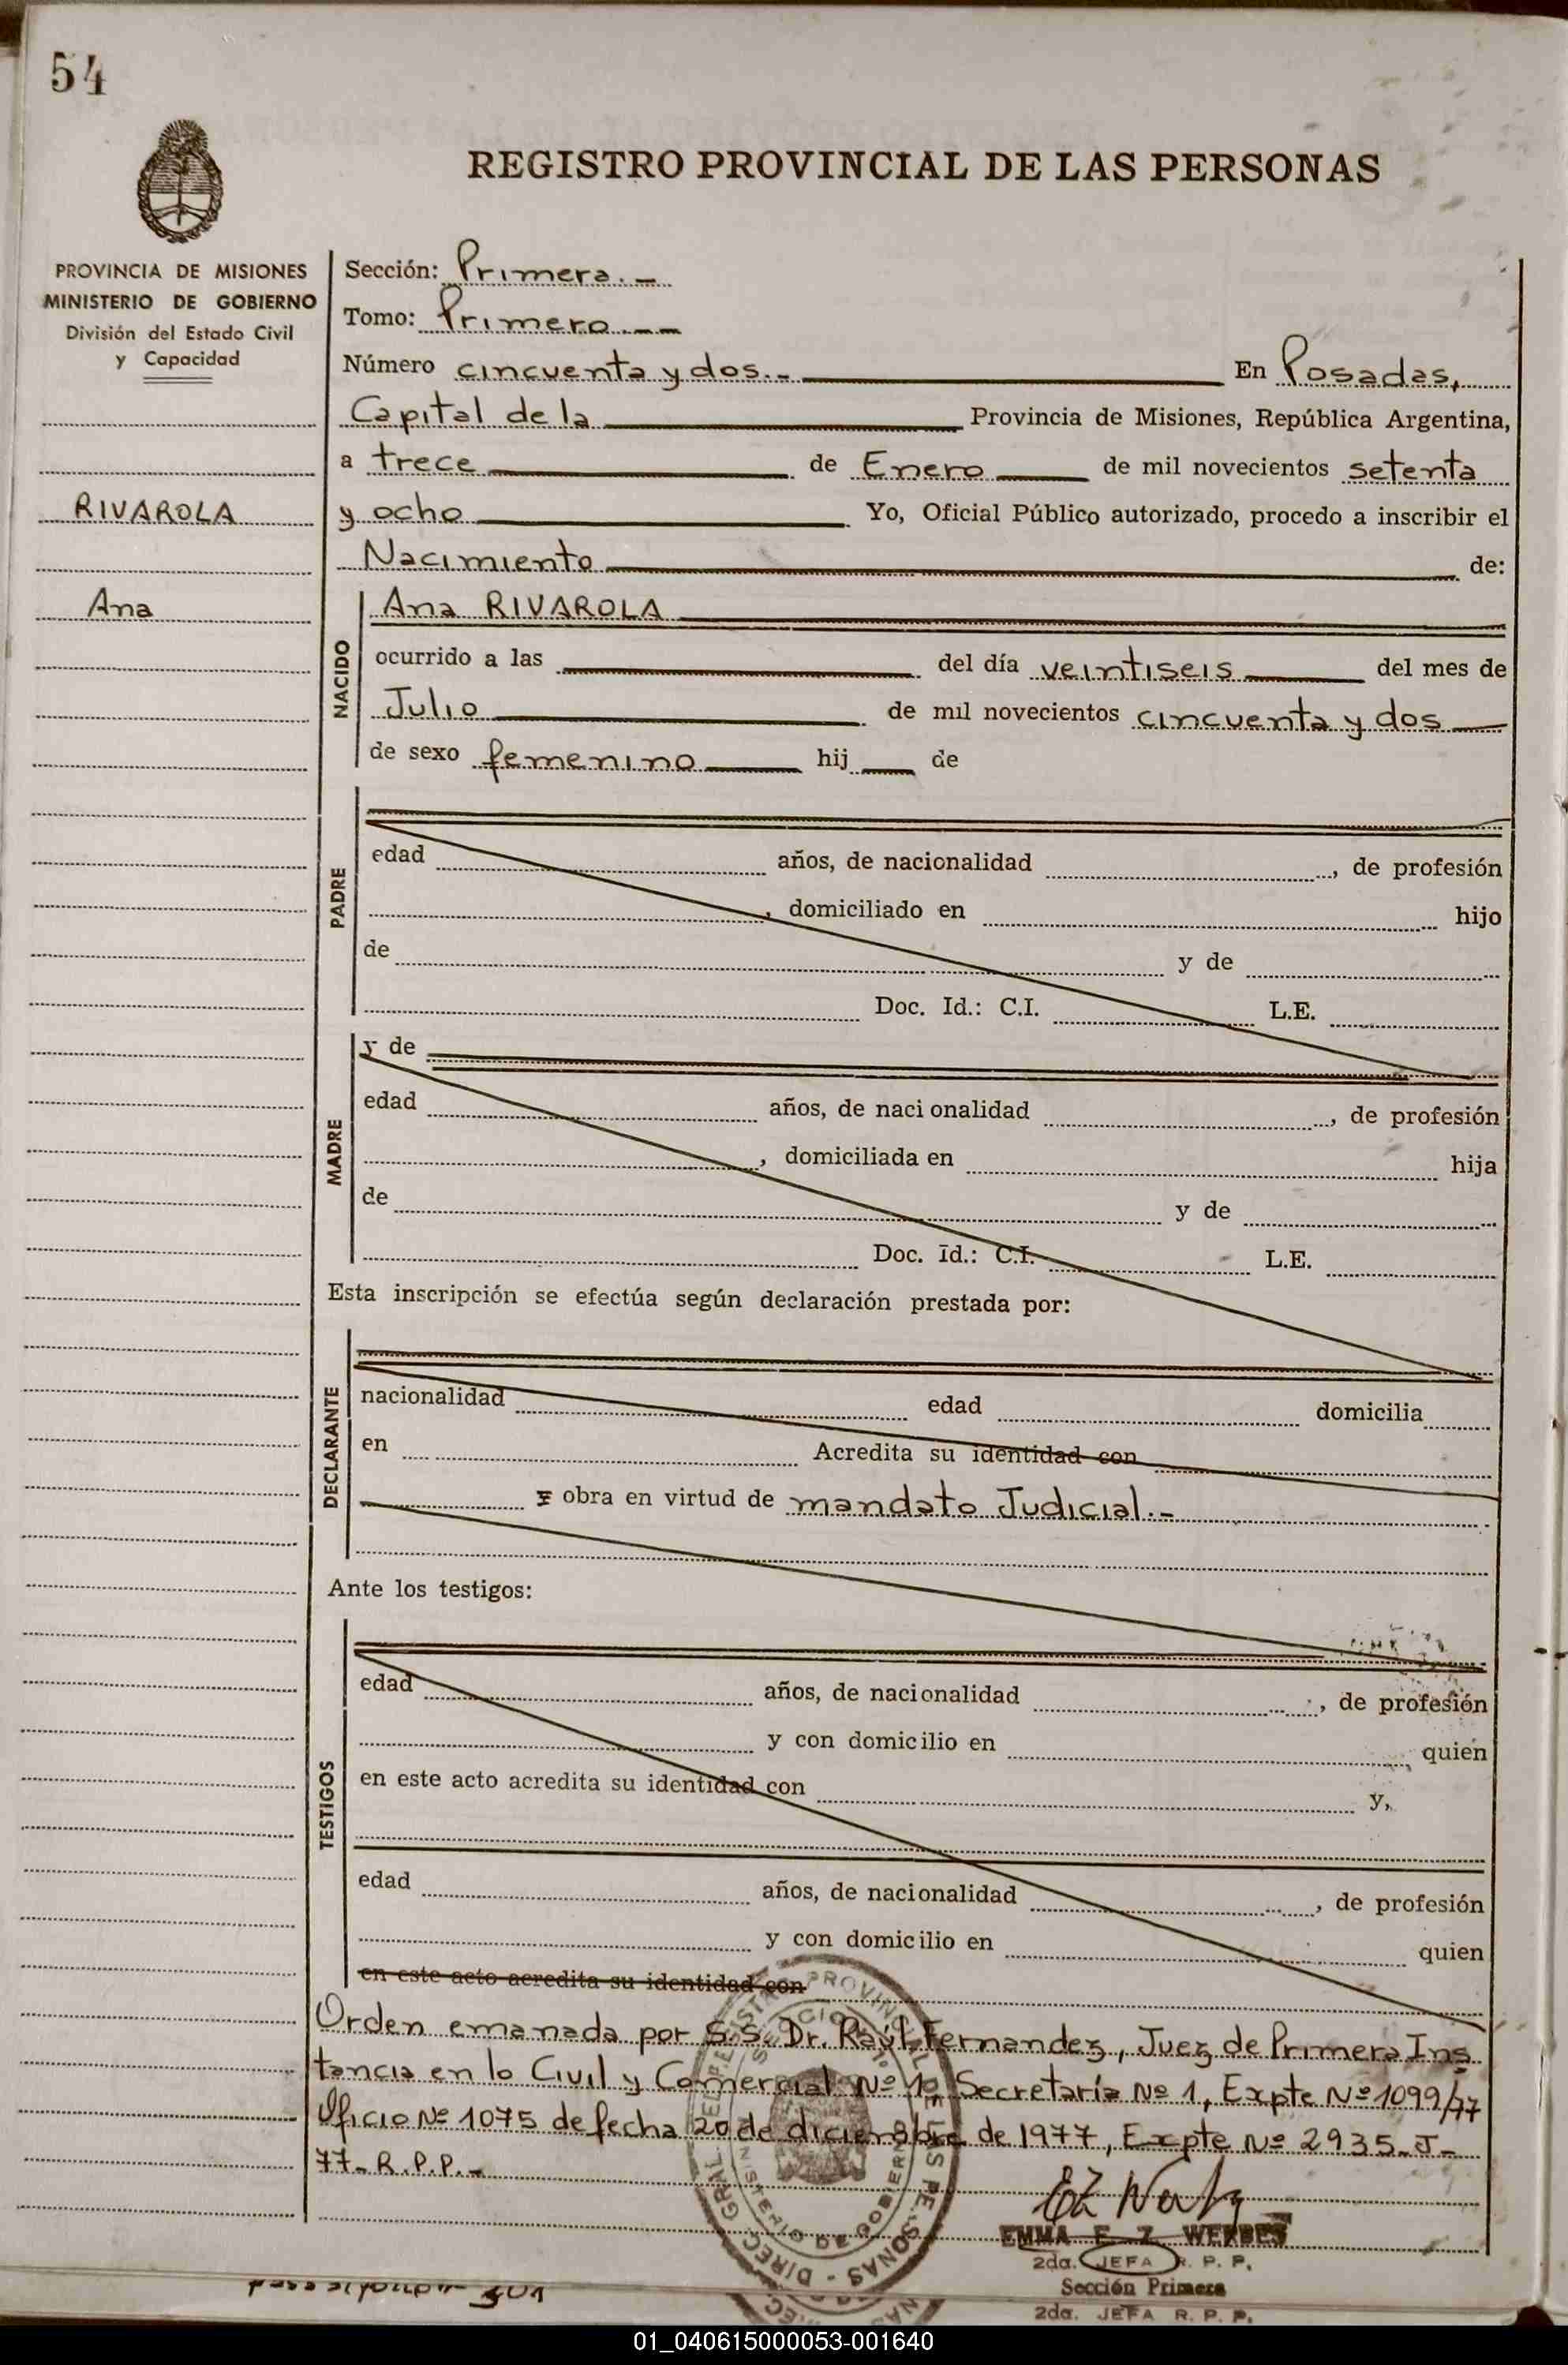 54
REGISTRO PROVINCIAL DE LAS PERSONAS
PROVINCIA DE MISIONES
MINISTERIO DE GOBIERNO
División del Estado Civil
y Capacidad
RIVAROLA
Ana
Sección: Primera.-
Tomo: Primero.--
Número cincuenta y dos.- En Posadas,
Capital de la Provincia de Misiones, República Argentina,
a trece de Enero de mil novecientos setenta
y ocho Yo, Oficial Público autorizado, procedo a inscribir el
Nacimiento de:
NACIDO
Ana RIVAROLA
ocurrido a las del día veintiseis del mes de
Julio de mil novecientos cincuenta y dos
de sexo femenino hij de
PADRE
edad años, de nacionalidad , de profesión
, domiciliado en hijo
de y de
Doc. Id.: C.I. L.E.
MADRE
y de
edad años, de nacionalidad , de profesión
, domiciliada en hija
de y de
Doc. Id.: C.I. L.E.
Esta inscripción se efectúa según declaración prestada por:
DECLARANTE
nacionalidad edad domicilia
en Acredita su identidad con
obra en virtud de mandato Judicial.-
Ante los testigos:
TESTIGOS
edad años, de nacionalidad , de profesión
y con domicilio en quien
en este acto acredita su identidad con y,
edad años, de nacionalidad , de profesión
y con domicilio en quien
en este acto acredita su identidad con
Orden emanada por S.S. Dr. Raúl Fernandez, Juez de Primera Ins
tancia en lo Civil y Comercial Nº 1, Secretaría Nº 1, Expte Nº 1099/77
Oficio Nº 1075 de fecha 20 de diciembre de 1977, Expte Nº 2935-J-
77-R.P.P.-
EMMA E. Z. WERBES
2da. JEFA R. P. P.
Sección Primera
2da. JEFA R. P. P.
301
01_040615000053-001640